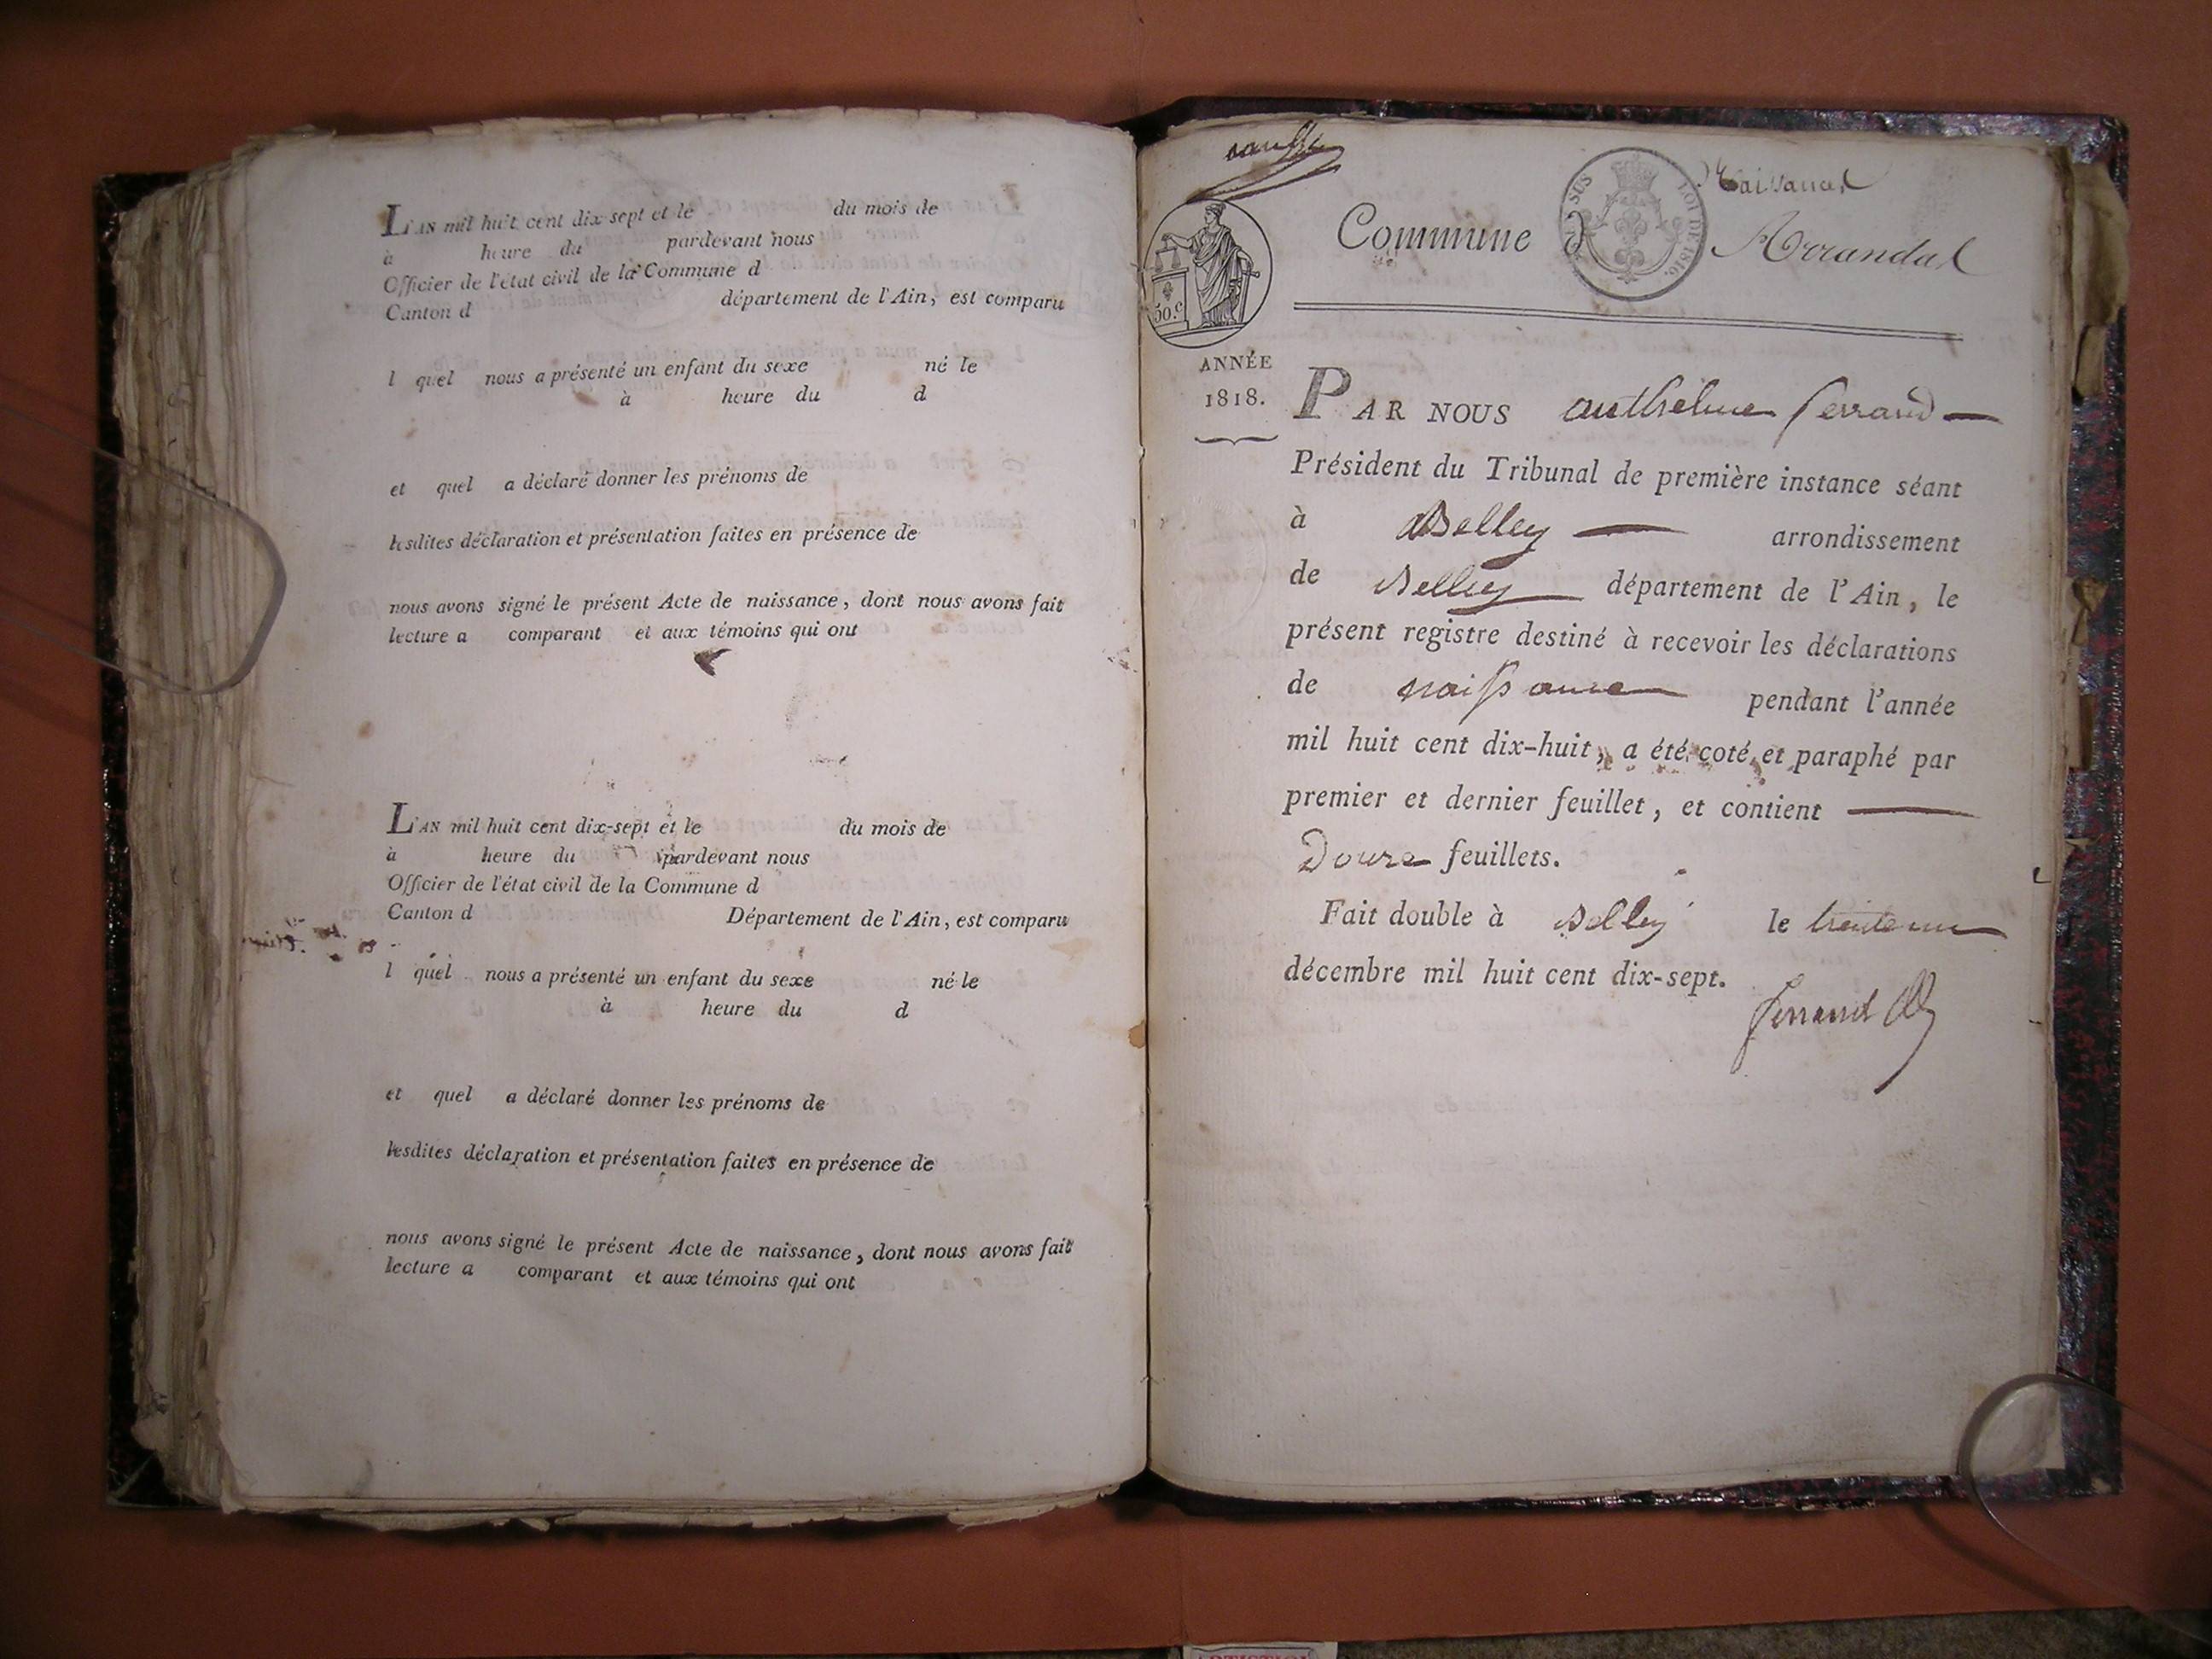 L'AN mil huit cent dix-sept et le du mois de
à heure du pardevant nous
Officier de l'état civil de la Commune d
Canton d département de l'Ain, est comparu
l quel nous a présenté un enfant du sexe né le
à heure du d
et quel a déclaré donner les prénoms de
lesdites déclaration et présentation faites en présence de
nous avons signé le présent Acte de naissance, dont nous avons fait
lecture a comparant et aux témoins qui ont
L'AN mil huit cent dix-sept et le du mois de
à heure du pardevant nous
Officier de l'état civil de la Commune d
Canton d Département de l'Ain, est comparu
l quel nous a présenté un enfant du sexe né le
à heure du d
et quel a déclaré donner les prénoms de
lesdites déclaration et présentation faites en présence de
nous avons signé le présent Acte de naissance, dont nous avons fait
lecture a comparant et aux témoins qui ont
Naissances
SUS LOI DE 1816.
Commune d Arrandas
50.c
ANNÉE
1818.
PAR NOUS anthelme ferrand
Président du Tribunal de première instance séant
à Belley arrondissement
de Belley département de l'Ain, le
présent registre destiné à recevoir les déclarations
de naissance pendant l'année
mil huit cent dix-huit, a été coté et paraphé par
premier et dernier feuillet, et contient
Douze feuillets.
Fait double à Belley le trente un
décembre mil huit cent dix-sept.
ferrand